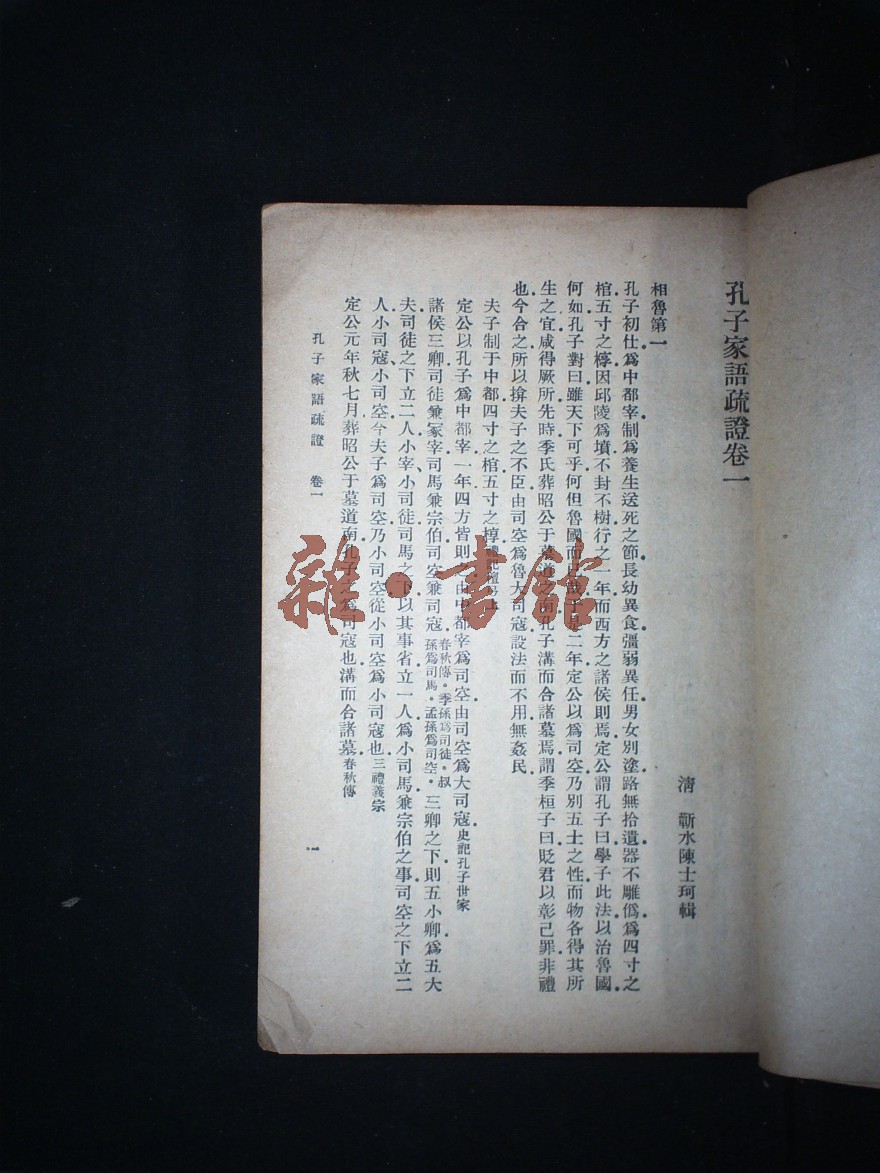 孔子家語疏證卷一
清 蘄水陳士珂輯
相魯第一
孔子初仕爲中都宰制爲養生送死之節長幼異食彊弱異任男女別塗路無拾遺器不雕僞爲四寸之
棺五寸之椁因邱陵爲墳不封不樹行之一年而西方之諸侯則焉定公謂孔子曰學子此法以治魯國
何如孔子對曰雖天下可乎何但魯國而已哉于是二年定公以爲司空乃別五土之性而物各得其所
生之宜咸得厥所先時季氏葬昭公于墓道之南孔子溝而合諸墓焉謂季桓子曰貶君以彰己罪非禮
也今合之所以揜夫子之不臣由司空爲魯大司寇設法而不用無姦民
夫子制于中都四寸之棺五寸之椁
定公以孔子爲中都宰一年四方皆則之由中都宰爲司空由司空爲大司寇史記孔子世家
諸侯三卿司徒兼冢宰司馬兼宗伯司空兼司寇春秋傳季孫爲司徒叔孫爲司馬孟孫爲司空三卿之下則五小卿爲五大
夫司徒之下立二人小宰小司徒司馬之下以其事省立一人爲小司馬兼宗伯之事司空之下立二
人小司寇小司空今夫子爲司空乃小司空從小司空爲小司寇也三禮義宗
定公元年秋七月葬昭公于墓道南孔子之爲司寇也溝而合諸墓春秋傳
孔子家語疏證 卷一 一
雜·書館